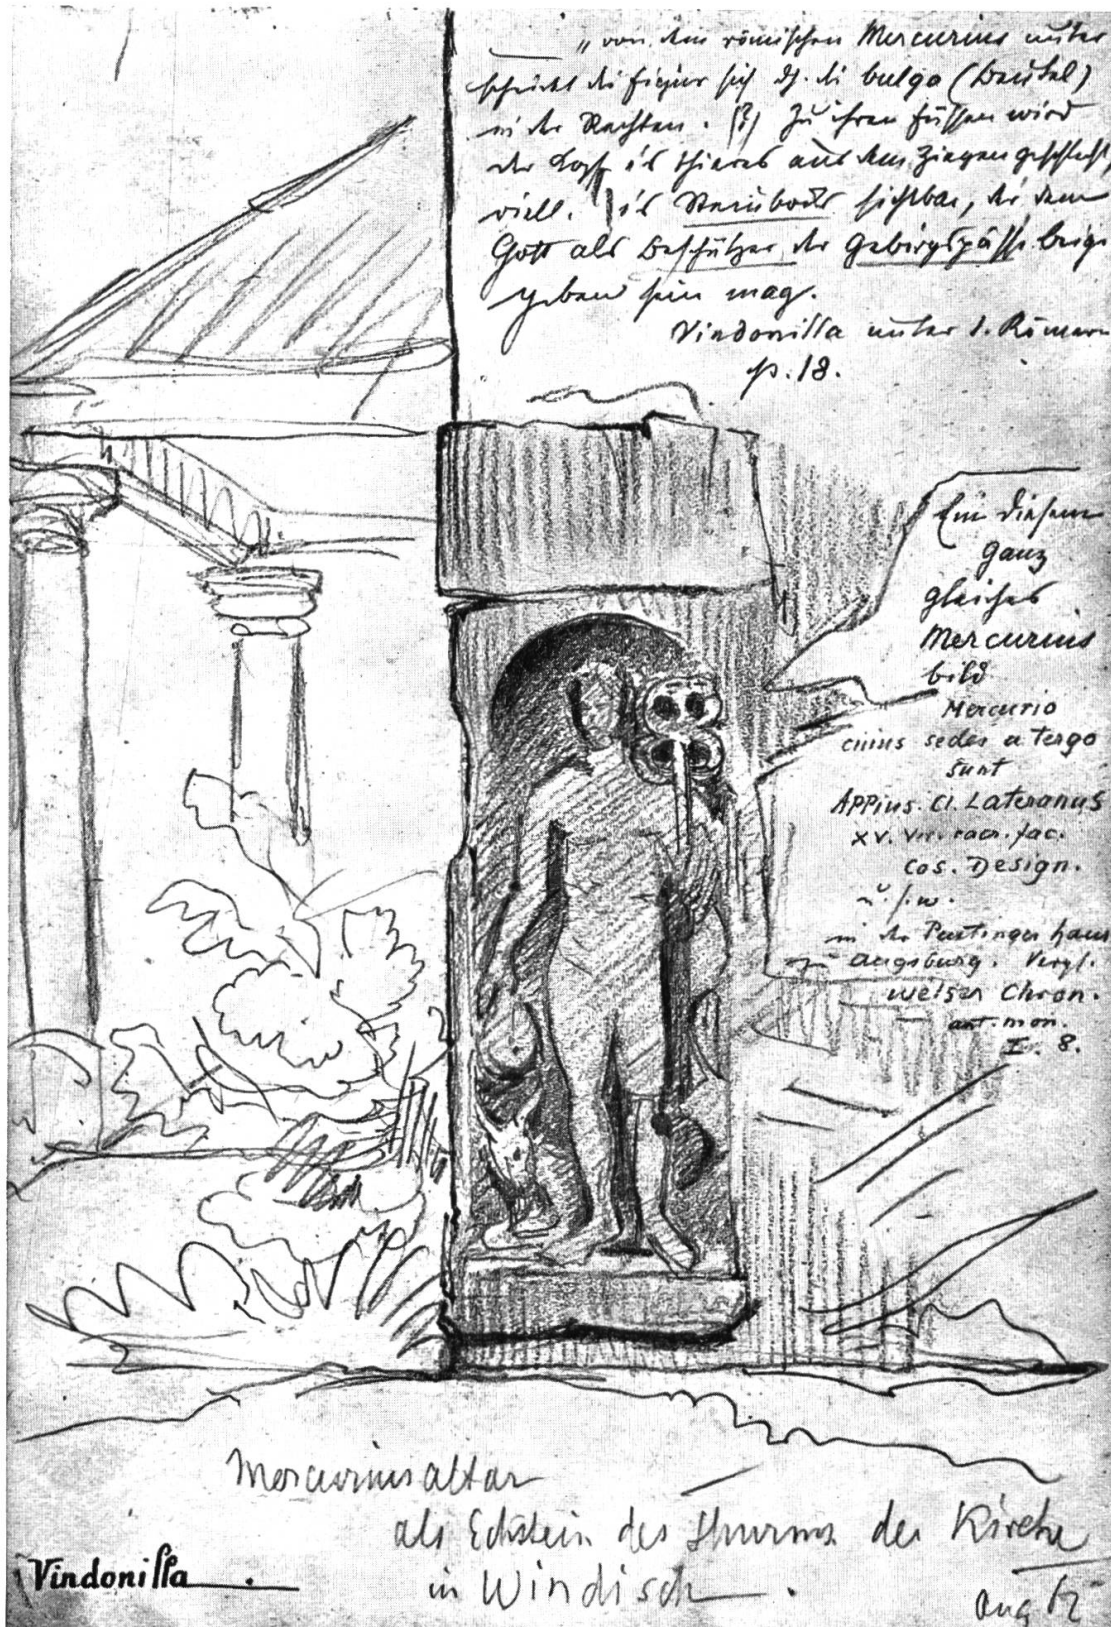 „ von dem römischen Mercurius unter
scheidet die Figur sich d. die bulga (Beutel)
in der Rechten. (?) Zu ihren Füssen wird
der Kopf e's Thieres aus dem Ziegengeschlecht,
viell. e's Steinbocks sichtbar, der dem
Gott als Beschützer der Gebirgspässe beige
geben sein mag.
Vindonissa unter d. Römern
p. 18.
Ein diesem
ganz
gleiches
Mercurius
bild
Mercurio
cuius sedes a tergo
sunt
Appius. Cl. Lateranus
XV. Vir. sacr. fac.
Cos. Design.
u. s. w.
in der Peutinger haus
zu Augsburg. Vergl.
Welser Chron.
ant. mon.
I. 8.
Mercuriusaltar
als Eckstein des Thurms der Kirche
in Windisch.
Vindonissa
Aug